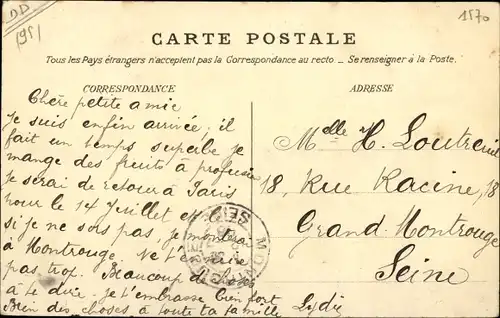 DD
1951
1570
CARTE POSTALE
Tous les Pays étrangers n'acceptent pas la Correspondance au recto. _ Se renseigner à la Poste.
CORRESPONDANCE
Chère petite amie
Je suis enfin arrivée, il
fait un temps superbe je
mange des fruits à profusion
Je serai de retour à Paris
pour le 14 Juillet et
si je ne sors pas je monterai
à Montrouge. Ne t'ennuie
pas trop. Beaucoup de choses
à te dire. je t'embrasse bien fort
Bien des choses à toute ta famille
Lydie
ADRESSE
Melle H. Loutreuil
18, Rue Racine, 18
Grand-Montrouge
Seine